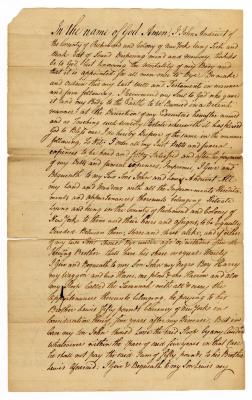 In the name of God Amen! I John
the County of Richmond and Colony of New York being Sick and
Weak but of Sound Disposing mind and memory thanks
be to God; but knowing the mortality of my Body and
that it is appointed for all men once to Dye; Do make
and ordain this my Last will and Testament in manner
and form following. I recommend my Soul to God who gave
it and my Body to the Earth to be buried in a Decent
manner at the Discretion of my Executors hereafter named
and as touching such worldly Estate wherewith it hath pleased
God to Bless me I do hereby Dispose of the same in the manner
following, to Wit I order all my Just Debts and funeral
expences to be paid and fully Satisfied and after the payment
of my Debts and funeral expences; Imprimis I Give and
Bequeath to my two Sons John and Lewis all
my Land and meadows with all the Improvements
and appurtenances thereunto belonging Situate
Lying and being in the County of Richmond and Colony of
New York to them and their heirs and assigns to be Equally
Divided Between them, Share and Share alike, and if either
of my two Sons
Brother Shall have his Share
I Give and Bequeath to my Son John my Negro Boy Harry
my Waggon and two Horses, one plow and also
my Called the Savannah with all
appurtenances thereunto belonging, he paying to his
Brother Lewis fifty pounds Currency of New York in
Consideration thereof five years after my Decease But in
case my Son John should Lose the said
whatsoever within the space of said five years in that case
he shall not pay the said Sum of fifty Pounds to his Brother
Lewis aforesaid. I Give & Bequeath to my Son Lewis my